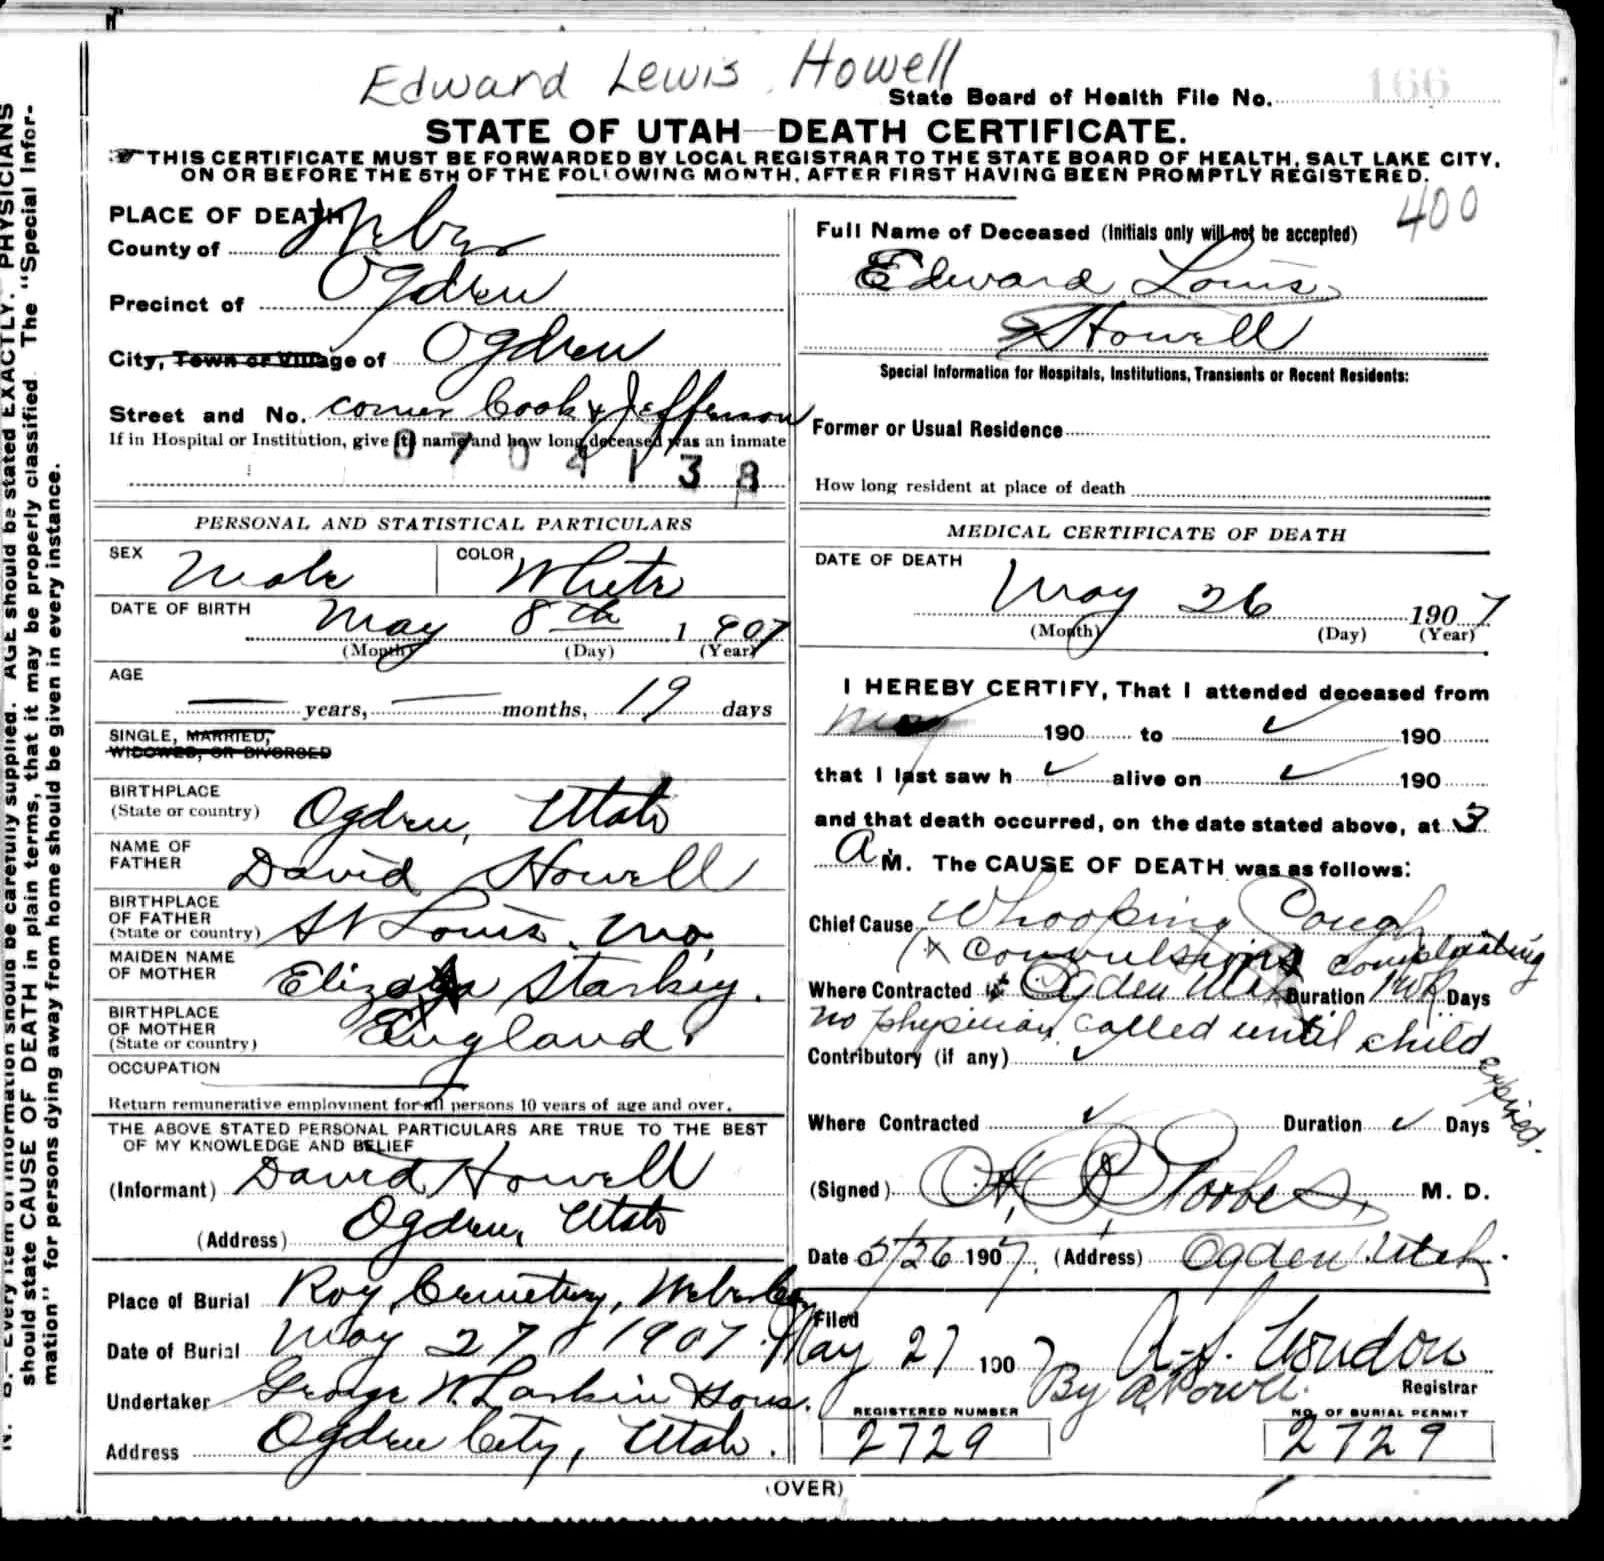 Edward Lewis Howell
State Board of Health File No. 166
STATE OF UTAH—DEATH CERTIFICATE.
THIS CERTIFICATE MUST BE FORWARDED BY LOCAL REGISTRAR TO THE STATE BOARD OF HEALTH, SALT LAKE CITY,
ON OR BEFORE THE 5TH OF THE FOLLOWING MONTH, AFTER FIRST HAVING BEEN PROMPTLY REGISTERED.
400
PLACE OF DEATH
County of Weber
Precinct of Ogden
City, Town or Village of Ogden
Street and No. corner Cook & Jefferson
If in Hospital or Institution, give its name and how long deceased was an inmate
0704138
PERSONAL AND STATISTICAL PARTICULARS
SEX Male COLOR White
DATE OF BIRTH May 8th 1907
(Month) (Day) (Year)
AGE
— years, — months, 19 days
SINGLE, MARRIED,
WIDOWED, OR DIVORCED
BIRTHPLACE
(State or country) Ogden, Utah
NAME OF
FATHER David Howell
BIRTHPLACE
OF FATHER
(State or country) St Louis, Mo.
MAIDEN NAME
OF MOTHER Eliza Starkey.
BIRTHPLACE
OF MOTHER
(State or country) England.
OCCUPATION
Return remunerative employment for all persons 10 years of age and over.
THE ABOVE STATED PERSONAL PARTICULARS ARE TRUE TO THE BEST
OF MY KNOWLEDGE AND BELIEF
(Informant) David Howell
(Address) Ogden, Utah
Place of Burial Roy Cemetery, Weber Co.
Date of Burial May 27 1907.
Undertaker George W. Larkin & Sons.
Address Ogden City, Utah.
Full Name of Deceased (Initials only will not be accepted)
Edward Louis
Howell
Special Information for Hospitals, Institutions, Transients or Recent Residents:
Former or Usual Residence
How long resident at place of death
MEDICAL CERTIFICATE OF DEATH
DATE OF DEATH
May 26 1907
(Month) (Day) (Year)
I HEREBY CERTIFY, That I attended deceased from
May 190 to ✓ 190
that I last saw h ✓ alive on ✓ 190
and that death occurred, on the date stated above, at 3
A M. The CAUSE OF DEATH was as follows:
Chief Cause Whooping Cough
convulsions complicating
Where Contracted Ogden Duration 1 wk Days
no physician called until child expired.
Contributory (if any) ✓
Where Contracted ✓ Duration ✓ Days
(Signed) Forbes M. D.
Date 5/26 1907, (Address) Ogden Utah.
Filed
May 27 1907 A. S. Condon
By Powell. Registrar
REGISTERED NUMBER
2729
NO. OF BURIAL PERMIT
2729
(OVER)
N. B.—Every item of information should be carefully supplied. AGE should be stated EXACTLY. PHYSICIANS
should state CAUSE OF DEATH in plain terms, that it may be properly classified. The "Special Infor-
mation" for persons dying away from home should be given in every instance.